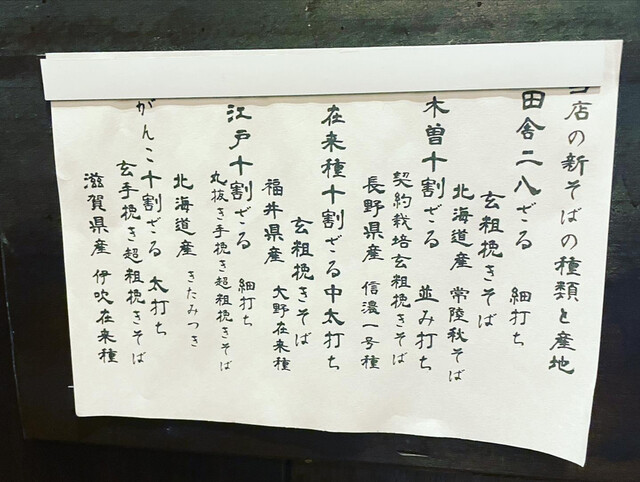 当店の新そばの種類と産地
田舎二八ざる 細打ち
玄粗挽きそば
北海道産 常陸秋そば
木曽十割ざる 並み打ち
契約栽培玄粗挽きそば
長野県産 信濃一号種
在来種十割ざる中太打ち
玄粗挽きそば
福井県産 大野在来種
江戸十割ざる 細打ち
丸抜き手挽き超粗挽きそば
北海道産 きたみつき
がんこ十割ざる 太打ち
玄手挽き超粗挽きそば
滋賀県産 伊吹在来種